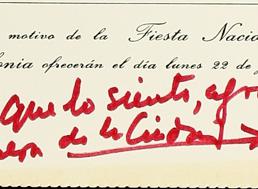 motivo de la Fiesta Nacio
onia ofrecerán el día lunes 22 de j
que lo siento, agra
de la Ciudad